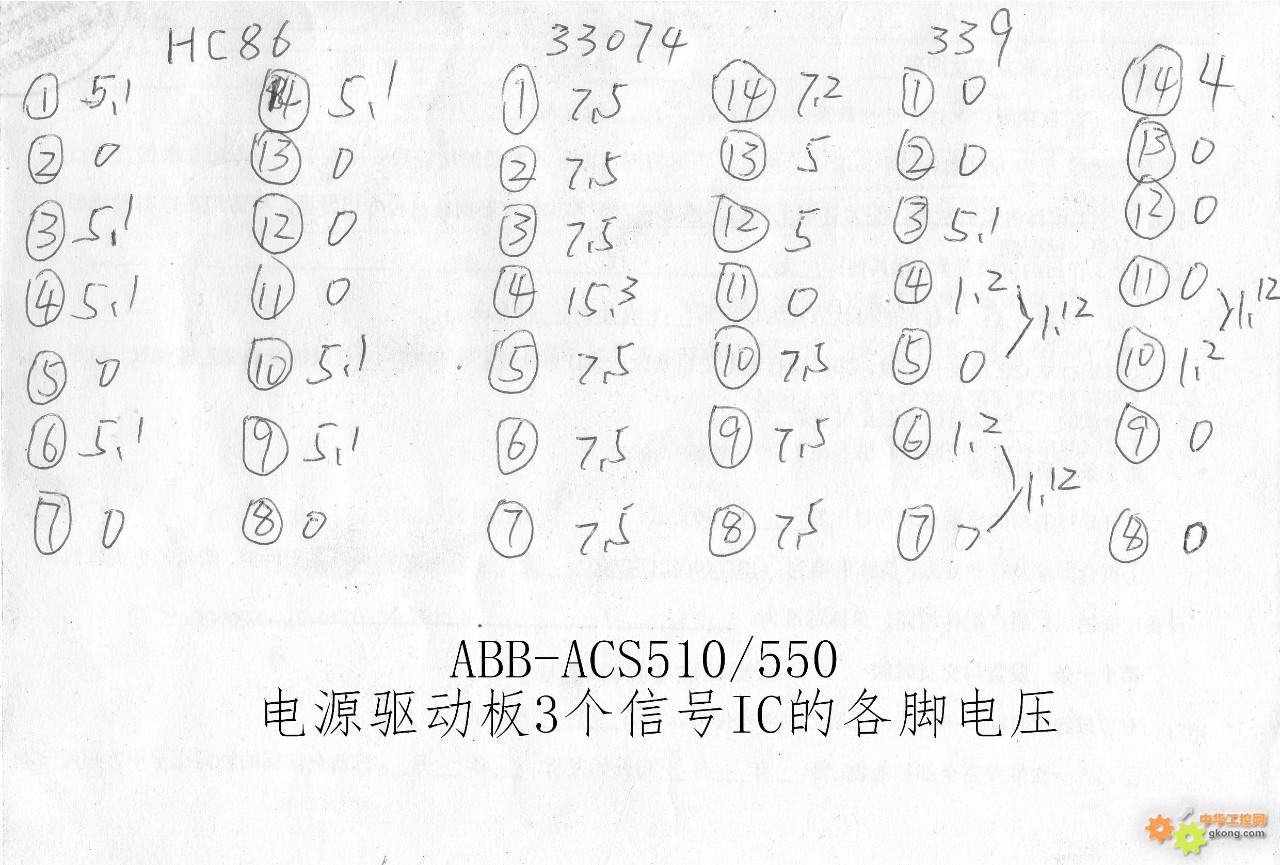 HC86 33074 339
① 5.1 ⑭ 5.1 ① 7.5 ⑭ 7.2 ① 0 ⑭ 4
② 0 ⑬ 0 ② 7.5 ⑬ 5 ② 0 ⑬ 0
③ 5.1 ⑫ 0 ③ 7.5 ⑫ 5 ③ 5.1 ⑫ 0
④ 5.1 ⑪ 0 ④ 15.3 ⑪ 0 ④ 1.2 ⑪ 0
1.12 1.12
⑤ 0 ⑩ 5.1 ⑤ 7.5 ⑩ 7.5 ⑤ 0 ⑩ 1.2
⑥ 5.1 ⑨ 5.1 ⑥ 7.5 ⑨ 7.5 ⑥ 1.2 ⑨ 0
1.12
⑦ 0 ⑧ 0 ⑦ 7.5 ⑧ 7.5 ⑦ 0 ⑧ 0
ABB-ACS510/550
电源驱动板3个信号IC的各脚电压
中华工控网
gkong.com